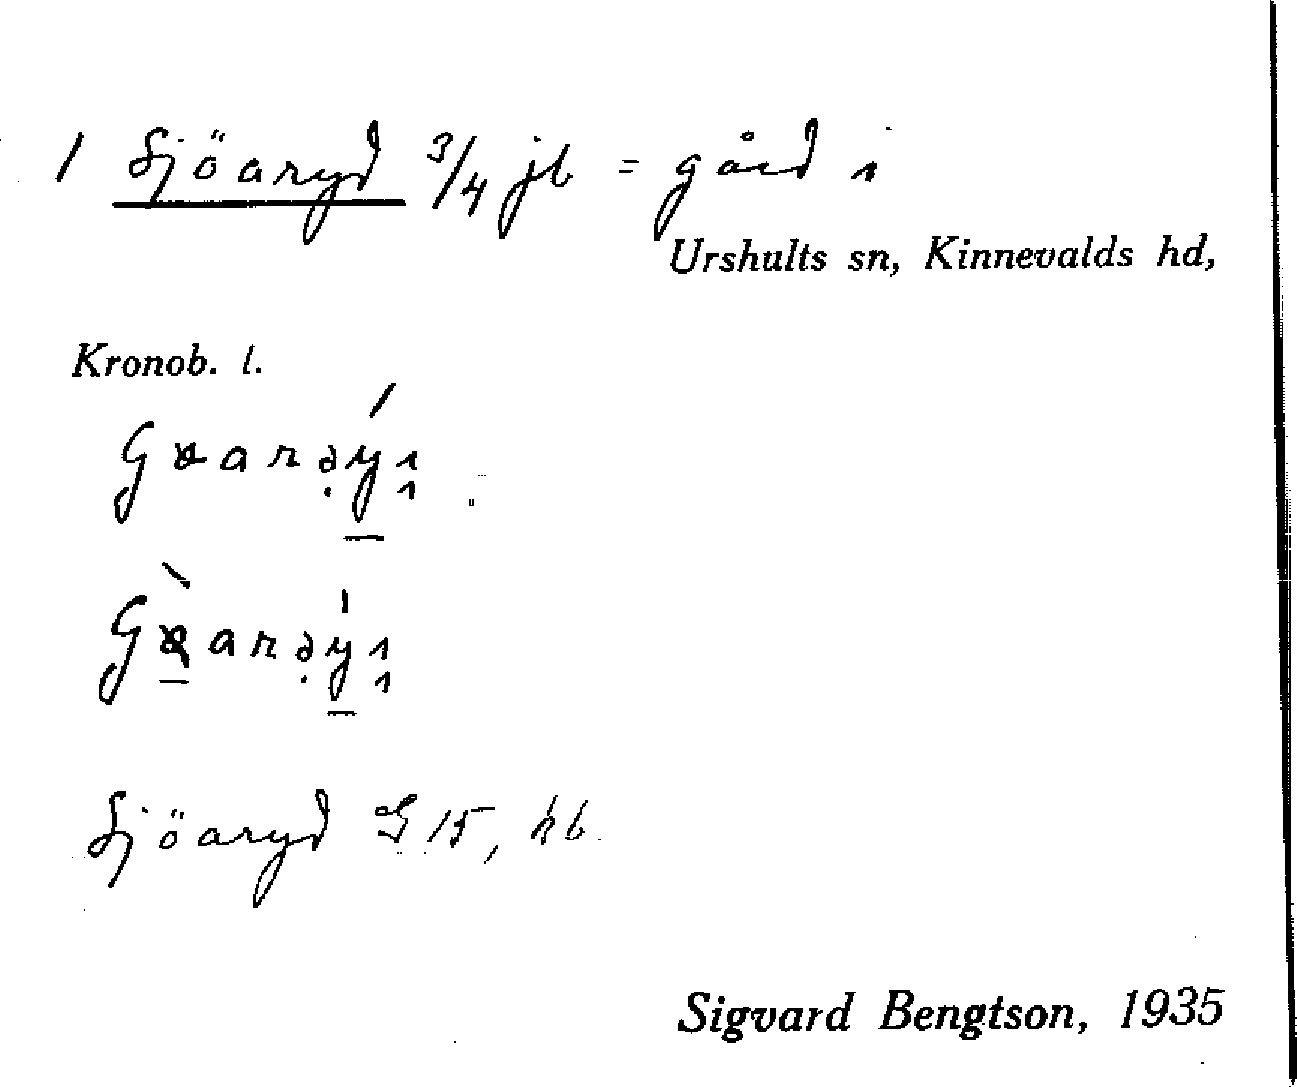 1 Sjöaryd 3/4 jb = gård i
Urshults sn, Kinnevalds hd,
Kronob. l.
Sjöaryd G 15, kb.
Sigvard Bengtson, 1935